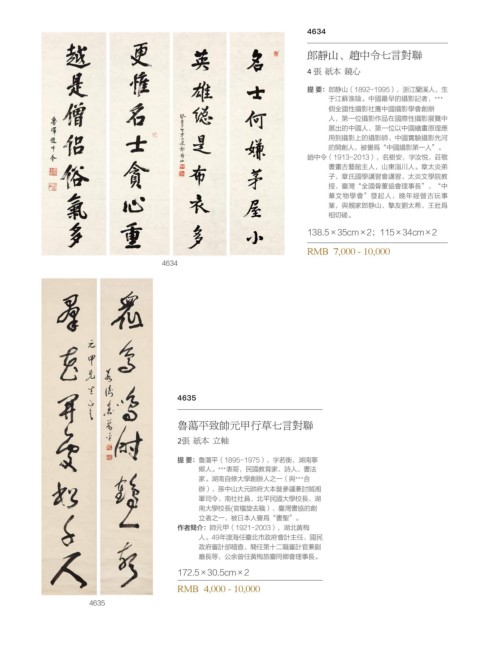 4634
郎靜山、趙中令七言對聯
4 張 紙本 鏡心
提 要：郎靜山（1892-1995），浙江蘭溪人，生
于江蘇淮陰。中國最早的攝影記者，***
個全國性攝影社團中國攝影學會創辦
人，第一位攝影作品在國際性攝影展覽中
展出的中國人，第一位以中國繪畫原理應
用到攝影上的攝影師，中國實驗攝影先河
的開創人，被譽爲“中國攝影第一人”。
趙中令（1913-2013），名樹安，字汝悦，莊敬
書畫古藝館主人，山東淄川人。章太炎弟
子，章氏國學講習會講習，太炎文學院教
授，臺灣“全國骨董協會理事長”，“中
華文物學會”發起人，晚年經營古玩事
業，與顧家郎靜山、摯友劉太希、王壯爲
相切磋。
138.5×35cm×2；115×34cm×2
RMB 7,000 - 10,000
名士何嫌茅屋小
英雄總是布衣多
更惟名士貪心重
越是僧侣俗氣多
魯僤趙中令
4634
4635
魯蕩平致帥元甲行草七言對聯
2張 紙本 立軸
提 要：魯蕩平（1895-1975），字若衡，湖南寧
鄉人。***表哥，民國教育家、詩人、書法
家。湖南自修大學創辦人之一（與***合
辦），孫中山大元帥府大本營參議兼討賊湘
軍司令，南社社員，北平民國大學校長，湖
南大學校長(官檔旋去職），臺灣書協的創
立者之一，被日本人譽爲“書聖”。
作者簡介：帥元甲（1921-2003），湖北黃梅
人。49年渡海任臺北市政府會計主任，國民
政府審計部稽查，簡任第十二職審計官兼副
廳長等，公余曾任黃梅旅臺同鄉會理事長。
172.5×30.5cm×2
RMB 4,000 - 10,000
眾鳥鳴時鶴一聲
羣花開處松千尺
元甲先生正之
若衡魯蕩平
4635